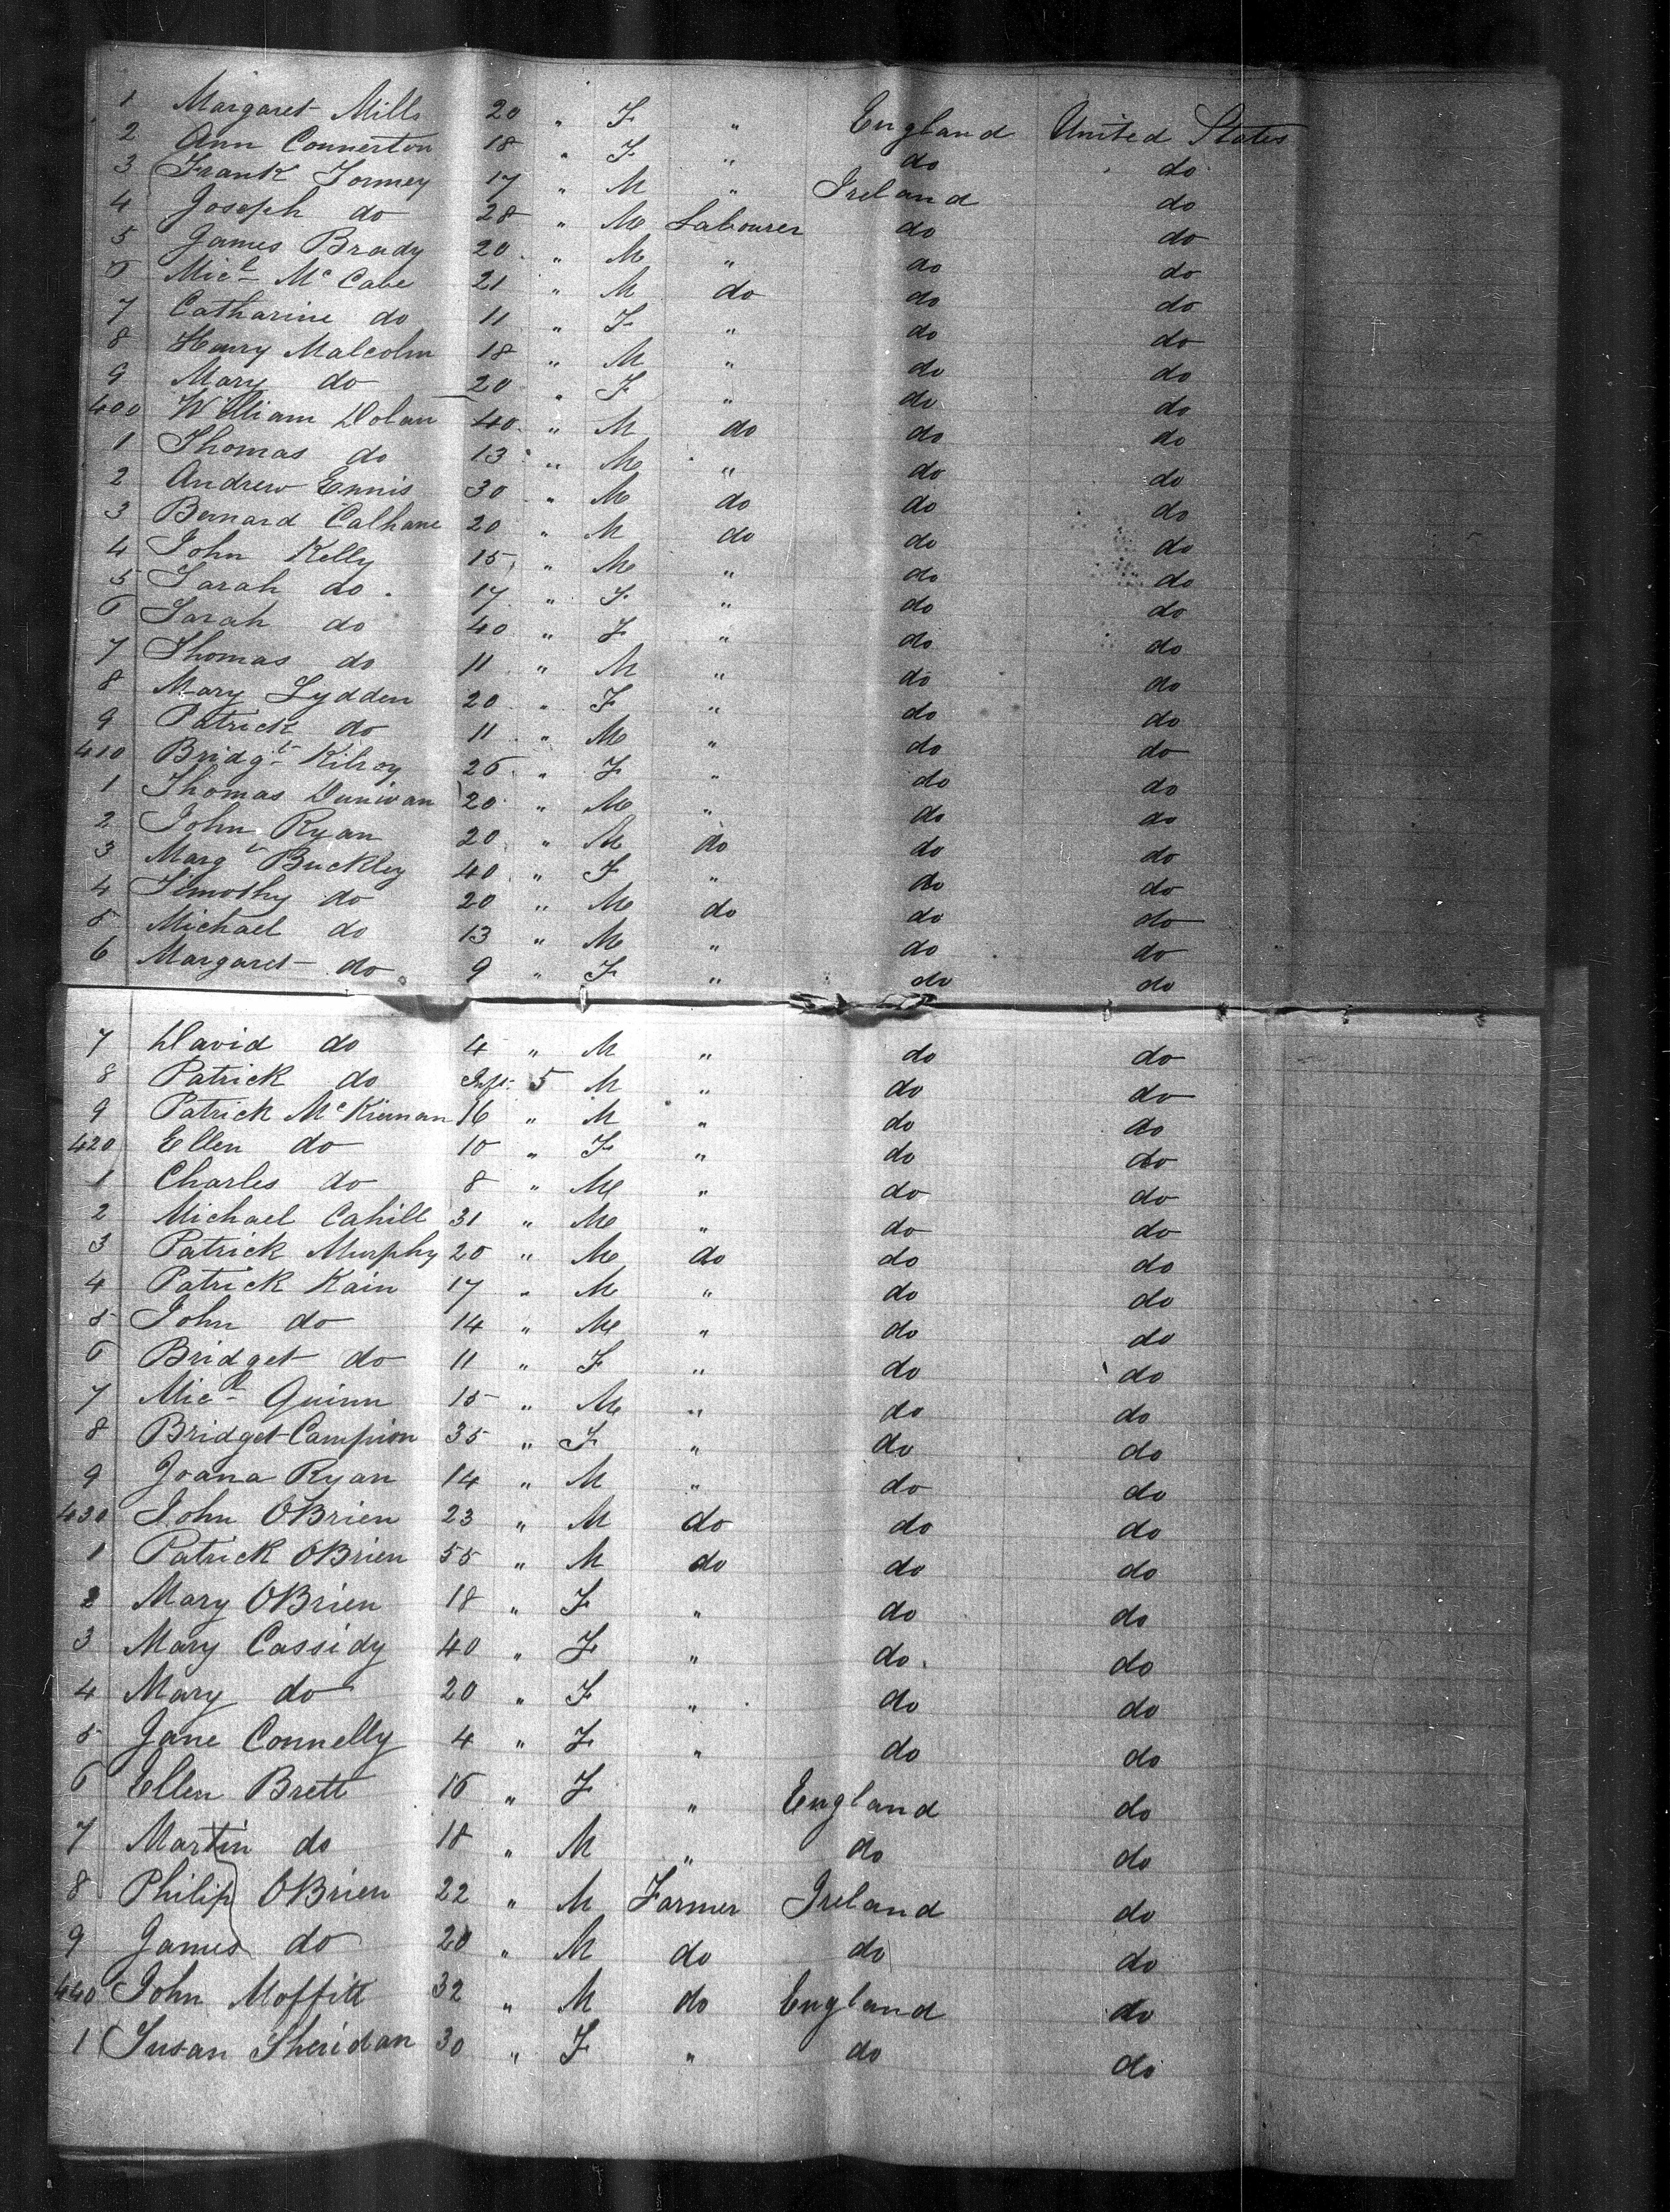 1 Margaret Mills 20 " F " England United States
2 Ann Connerton 18 " F " do do
3 Frank Tormey 17 " M " Ireland do
4 Joseph do 28 " M Labourer do do
5 James Brady 20 " M " do do
6 Micl McCabe 21 " M do do do
7 Catharine do 11 " F " do do
8 Henry Malcolm 18 " M " do do
9 Mary do 20 " F " do do
400 William Dolan 40 " M do do do
1 Thomas do 13 " M " do do
2 Andrew Ennis 30 " M do do do
3 Bernard Calhane 20 " M do do do
4 John Kelly 15 " M " do do
5 Sarah do 17 " F " do do
6 Sarah do 40 " F " do do
7 Thomas do 11 " M " do do
8 Mary Lydden 20 " F " do do
9 Patrick do 11 " M " do do
410 Bridgt Kilroy 26 " F " do do
1 Thomas Dunivan 20 " M " do do
2 John Ryan 20 " M do do do
3 Margt Buckley 40 " F " do do
4 Timothy do 20 " M do do do
5 Michael do 13 " M " do do
6 Margaret do 9 " F " do do
7 David do 4 " M " do do
8 Patrick do Inft 5 M " do do
9 Patrick McKiernan 16 " M " do do
420 Ellen do 10 " F " do do
1 Charles do 8 " M " do do
2 Michael Cahill 31 " M " do do
3 Patrick Murphy 20 " M do do do
4 Patrick Kain 17 " M " do do
5 John do 14 " M " do do
6 Bridget do 11 " F " do do
7 Micl Quinn 15 " M " do do
8 Bridget Campion 35 " F " do do
9 Joana Ryan 14 " M " do do
430 John OBrien 23 " M do do do
1 Patrick OBrien 55 " M do do do
2 Mary OBrien 18 " F " do do
3 Mary Cassidy 40 " F " do do
4 Mary do 20 " F " do do
5 Jane Connelly 4 " F " do do
6 Ellen Brett 16 " F " England do
7 Martin do 18 " M " do do
8 Philip OBrien 22 " M Farmer Ireland do
9 James do 20 " M do do do
440 John Moffitt 32 " M do England do
1 Susan Sheridan 30 " F " do do